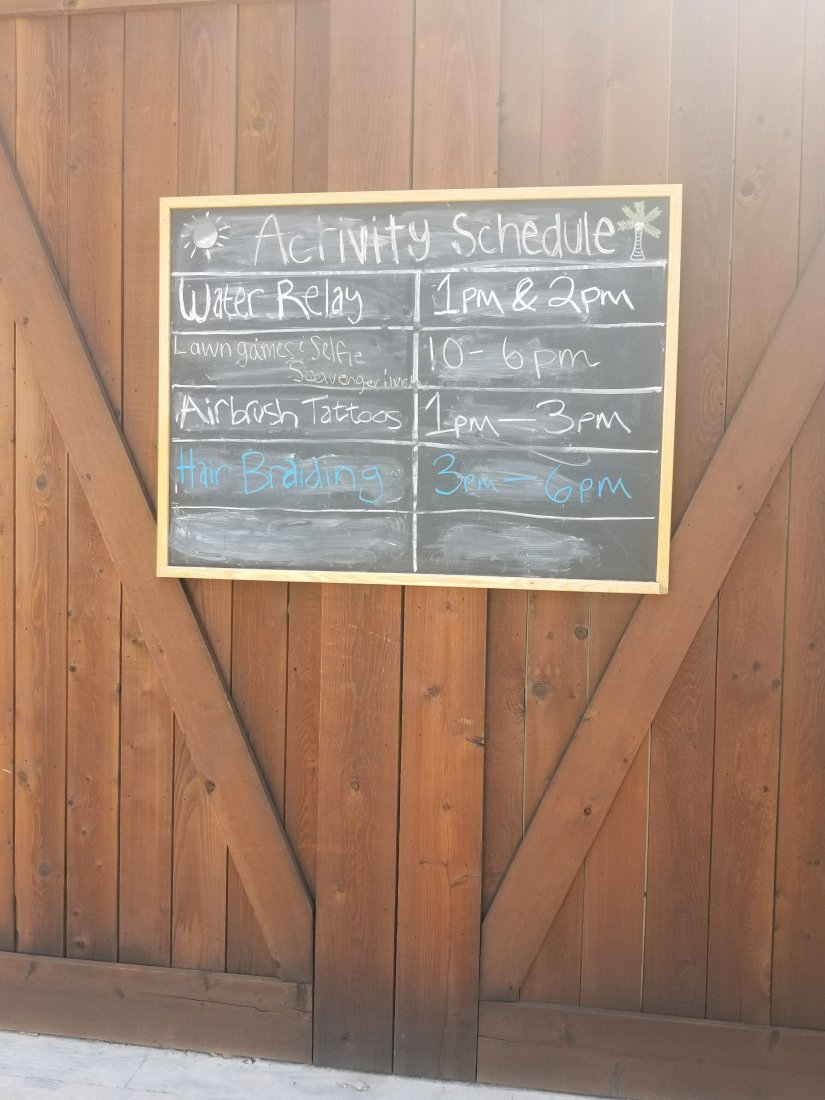 Activity Schedule
Water Relay 1pm & 2pm
Lawn games & Selfie
Scavenger Hunt 10 - 6pm
Airbrush Tattoos 1pm - 3pm
Hair Braiding 3pm - 6pm